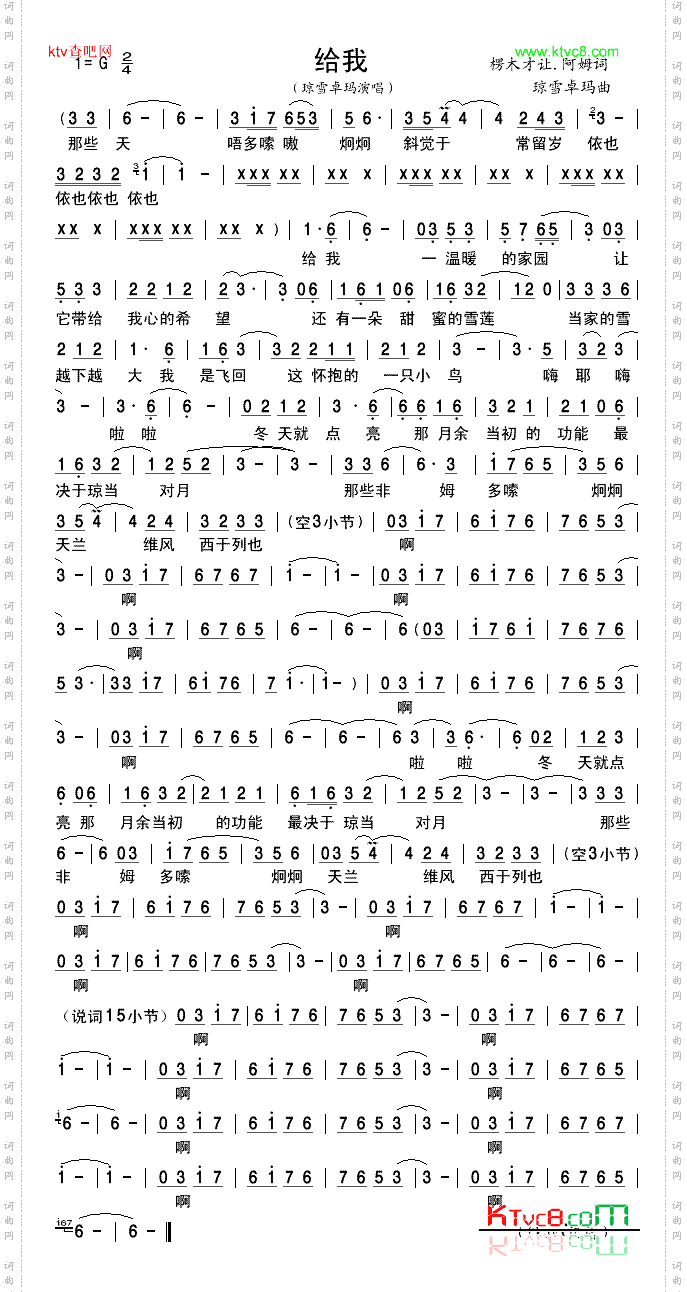 ktv查吧网 www.ktvc8.com
给我
1=G 2/4 楞木才让.阿姆词
(琼雪卓玛演唱) 琼雪卓玛曲
(3 3 | 6 - | 6 - | 3 i 7 653 | 3 5 4 | 4 | 2 4 3 | 3 - |
那些 天 唔多嗦 嗷 炯炯 斜觉于 常留岁 依也
3 2 3 2 | i | i - | xxx xx | xx x | xxx xx | xx x | xxx xx |
依也依也 依也
xx x | xxx xx | xx x ) | 1· 6 | 6 - | 03 5 3 | 5 7 65 | 3 03 |
给 我 一 温暖 的家园 让
5 3 3 | 2 2 1 2 | 2 3· | 3 06 | 1 6 1 06 | 16 32 | 1 2 0 | 3 3 3 6 |
它带给 我心的希 望 还 有一朵 甜 蜜的雪莲 当家的雪
2 1 2 | 1· 6 | 1 6 3 | 3 2 2 1 1 | 2 1 2 | 3 - | 3· 5 | 3 2 3 |
越下越 大 我 是飞回 这 怀抱的 一只小 鸟 嗨 耶 嗨
3 - | 3· 6 | 6 - | 0 2 1 2 | 3 · 6 | 6 6 1 6 | 3 2 1 | 2 1 0 6 |
啦 啦 冬 天就 点 亮 那 月余 当初 的 功能 最
1 6 3 2 | 1 2 5 2 | 3 - | 3 - | 3 3 6 | 6· 3 | i 7 6 5 | 3 5 6 |
决于琼当 对月 那些非 姆 多嗦 炯炯
3 5 4 | 4 2 4 | 3 2 3 3 | (空3小节) | 0 3 i 7 | 6 i 7 6 | 7 6 5 3 |
天兰 维风 西于列也 啊
3 - | 0 3 i 7 | 6 7 6 7 | i - | i - | 0 3 i 7 | 6 i 7 6 | 7 6 5 3 |
啊 啊
3 - | 0 3 i 7 | 6 7 6 5 | 6 - | 6 - | 6 (03 | i 7 6 i | 7 6 7 6 |
啊
5 3 · | 3 3 i 7 | 6 i 7 6 | 7 i · | i - ) | 0 3 i 7 | 6 i 7 6 | 7 6 5 3 |
啊
3 - | 0 3 i 7 | 6 7 6 5 | 6 - | 6 - | 6 3 | 3 6· | 6 02 | 1 2 3 |
啊 啦 啦 冬 天就点
6 06 | 1 6 3 2 | 2 1 2 1 | 6 1 6 3 2 | 1 2 5 2 | 3 - | 3 - | 3 3 3 |
亮 那 月余当初 的功能 最决于 琼当 对月 那些
6 - | 6 03 | i 7 6 5 | 3 5 6 | 03 5 4 | 4 2 4 | 3 2 3 3 | (空3小节) |
非 姆 多嗦 炯炯 天兰 维风 西于列也
0 3 i 7 | 6 i 7 6 | 7 6 5 3 | 3 - | 0 3 i 7 | 6 7 6 7 | i - | i - |
啊 啊
0 3 i 7 | 6 i 7 6 | 7 6 5 3 | 3 - | 0 3 i 7 | 6 7 6 5 | 6 - | 6 - |
啊 啊
(说词15小节) 0 3 i 7 | 6 i 7 6 | 7 6 5 3 | 3 - | 0 3 i 7 | 6 7 6 7 |
啊 啊
i - | i - | 0 3 i 7 | 6 i 7 6 | 7 6 5 3 | 3 - | 0 3 i 7 | 6 7 6 5 |
啊 啊
6 - | 6 - | 0 3 i 7 | 6 i 7 6 | 7 6 5 3 | 3 - | 0 3 i 7 | 6 7 6 7 |
啊 啊
i - | i - | 0 3 i 7 | 6 i 7 6 | 7 6 5 3 | 3 - | 0 3 i 7 | 6 7 6 5 |
啊 啊
i67 6 - | 6 - ‖
KTvc8.com